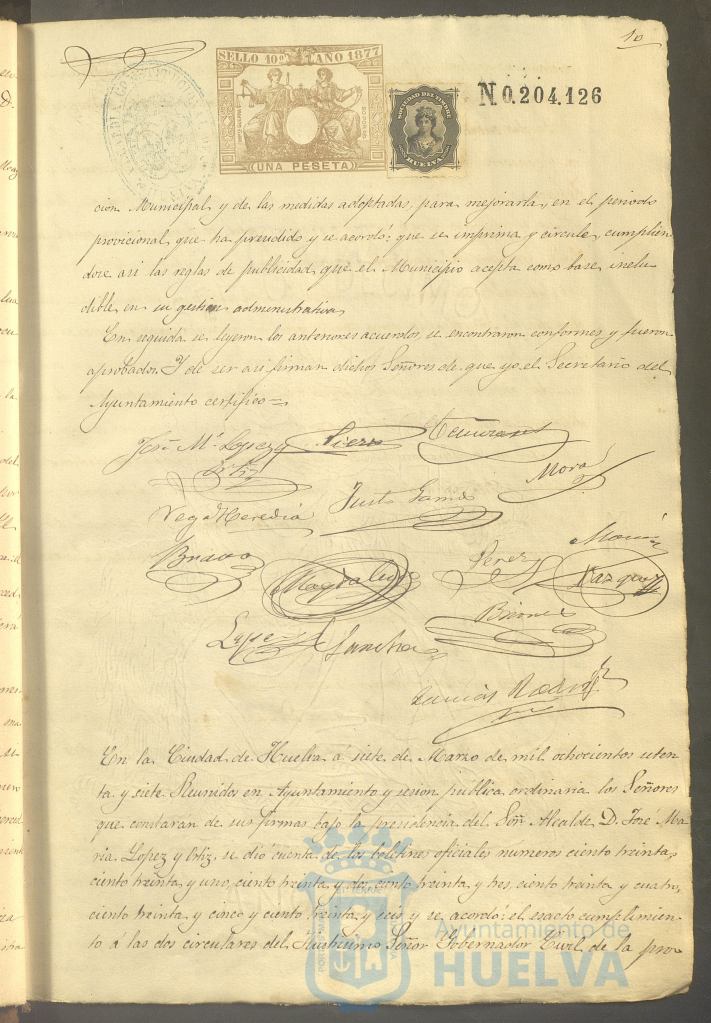 10
SELLO 10º AÑO 1877
UNA PESETA
SOCIEDAD DEL TIMBRE
HUELVA
N 0.204.126
cion Municipal, y de las medidas adoptadas, para mejorarla, en el periodo
provicional, que ha prendido y se acordo: que se imprima y circule, cumplien
dose asi las reglas de publicidad, que el Municipio acepta como base, inelu
dible, en su gestion administrativa
En seguida se leyeron los anteriores acuerdos, se encontraron conformes y fueron
aprobados. Y de ser asi firman dichos Señores de que yo el Secretario del
Ayuntamiento certifico=
José Mª Lopez y
Ortiz
Mora
Vega Heredia
Justo
Bravo
Perez
Vazquez
Lopez
Sanchez
En la Ciudad de Huelva á siete de Marzo de mil ochocientos seten
ta y siete Reunidos en Ayuntamiento y sesion publica ordinaria los Señores
que constaran de sus firmas bajo la presidencia del Señ Alcalde D. José Ma
ria Lopez y Ortiz, se dió cuenta de los boletines oficiales numeros ciento treinta,
ciento treinta y uno, ciento treinta y dos, ciento treinta y tres, ciento treinta y cuatro,
ciento treinta y cinco y ciento treinta y seis y se acordó: el esacto cumplimien
to á las dos circulares del Ilustrisimo Señor Gobernador Civil de la pro
Ayuntamiento de
HUELVA